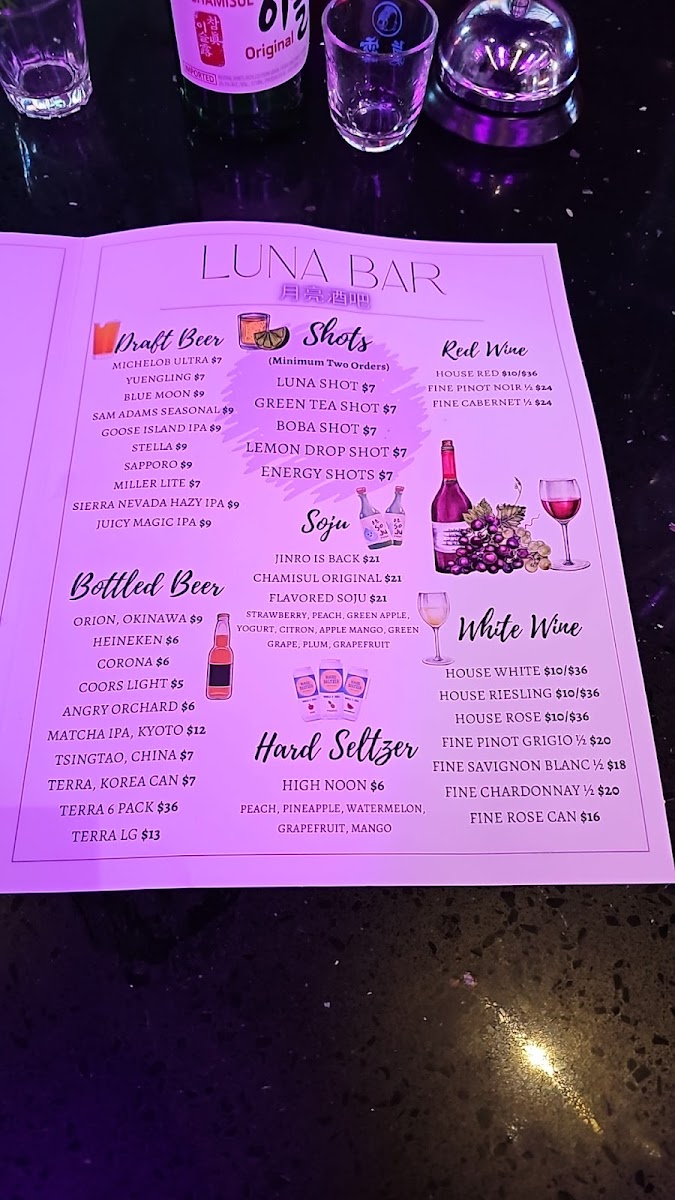 CHAMISUL
참眞
이슬
露
이슬
Original
IMPORTED
LUNA BAR
月亮酒吧
Draft Beer
MICHELOB ULTRA $7
YUENGLING $7
BLUE MOON $9
SAM ADAMS SEASONAL $9
GOOSE ISLAND IPA $9
STELLA $9
SAPPORO $9
MILLER LITE $7
SIERRA NEVADA HAZY IPA $9
JUICY MAGIC IPA $9
Bottled Beer
ORION, OKINAWA $9
HEINEKEN $6
CORONA $6
COORS LIGHT $5
ANGRY ORCHARD $6
MATCHA IPA, KYOTO $12
TSINGTAO, CHINA $7
TERRA, KOREA CAN $7
TERRA 6 PACK $36
TERRA LG $13
Shots
(Minimum Two Orders)
LUNA SHOT $7
GREEN TEA SHOT $7
BOBA SHOT $7
LEMON DROP SHOT $7
ENERGY SHOTS $7
Soju
JINRO IS BACK $21
CHAMISUL ORIGINAL $21
FLAVORED SOJU $21
STRAWBERRY, PEACH, GREEN APPLE,
YOGURT, CITRON, APPLE MANGO, GREEN
GRAPE, PLUM, GRAPEFRUIT
Hard Seltzer
HIGH NOON $6
PEACH, PINEAPPLE, WATERMELON,
GRAPEFRUIT, MANGO
Red Wine
HOUSE RED $10/$36
FINE PINOT NOIR ½ $24
FINE CABERNET ½ $24
White Wine
HOUSE WHITE $10/$36
HOUSE RIESLING $10/$36
HOUSE ROSE $10/$36
FINE PINOT GRIGIO ½ $20
FINE SAVIGNON BLANC ½ $18
FINE CHARDONNAY ½ $20
FINE ROSE CAN $16